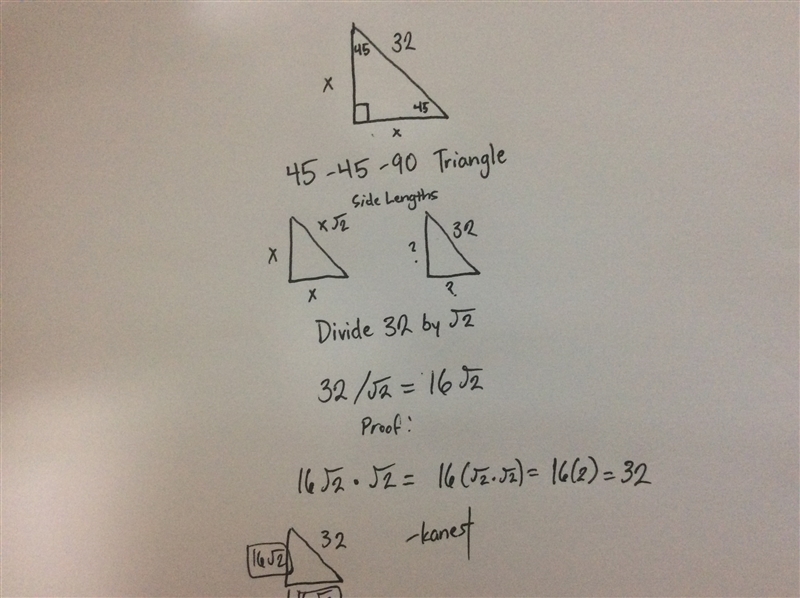 45 32
x
45
x
45-45-90 Triangle
Side Lengths
x√2 32
x ?
x ?
Divide 32 by √2
32/√2 = 16√2
Proof:
16√2 · √2 = 16(√2·√2) = 16(2) = 32
32 -kanest
16√2